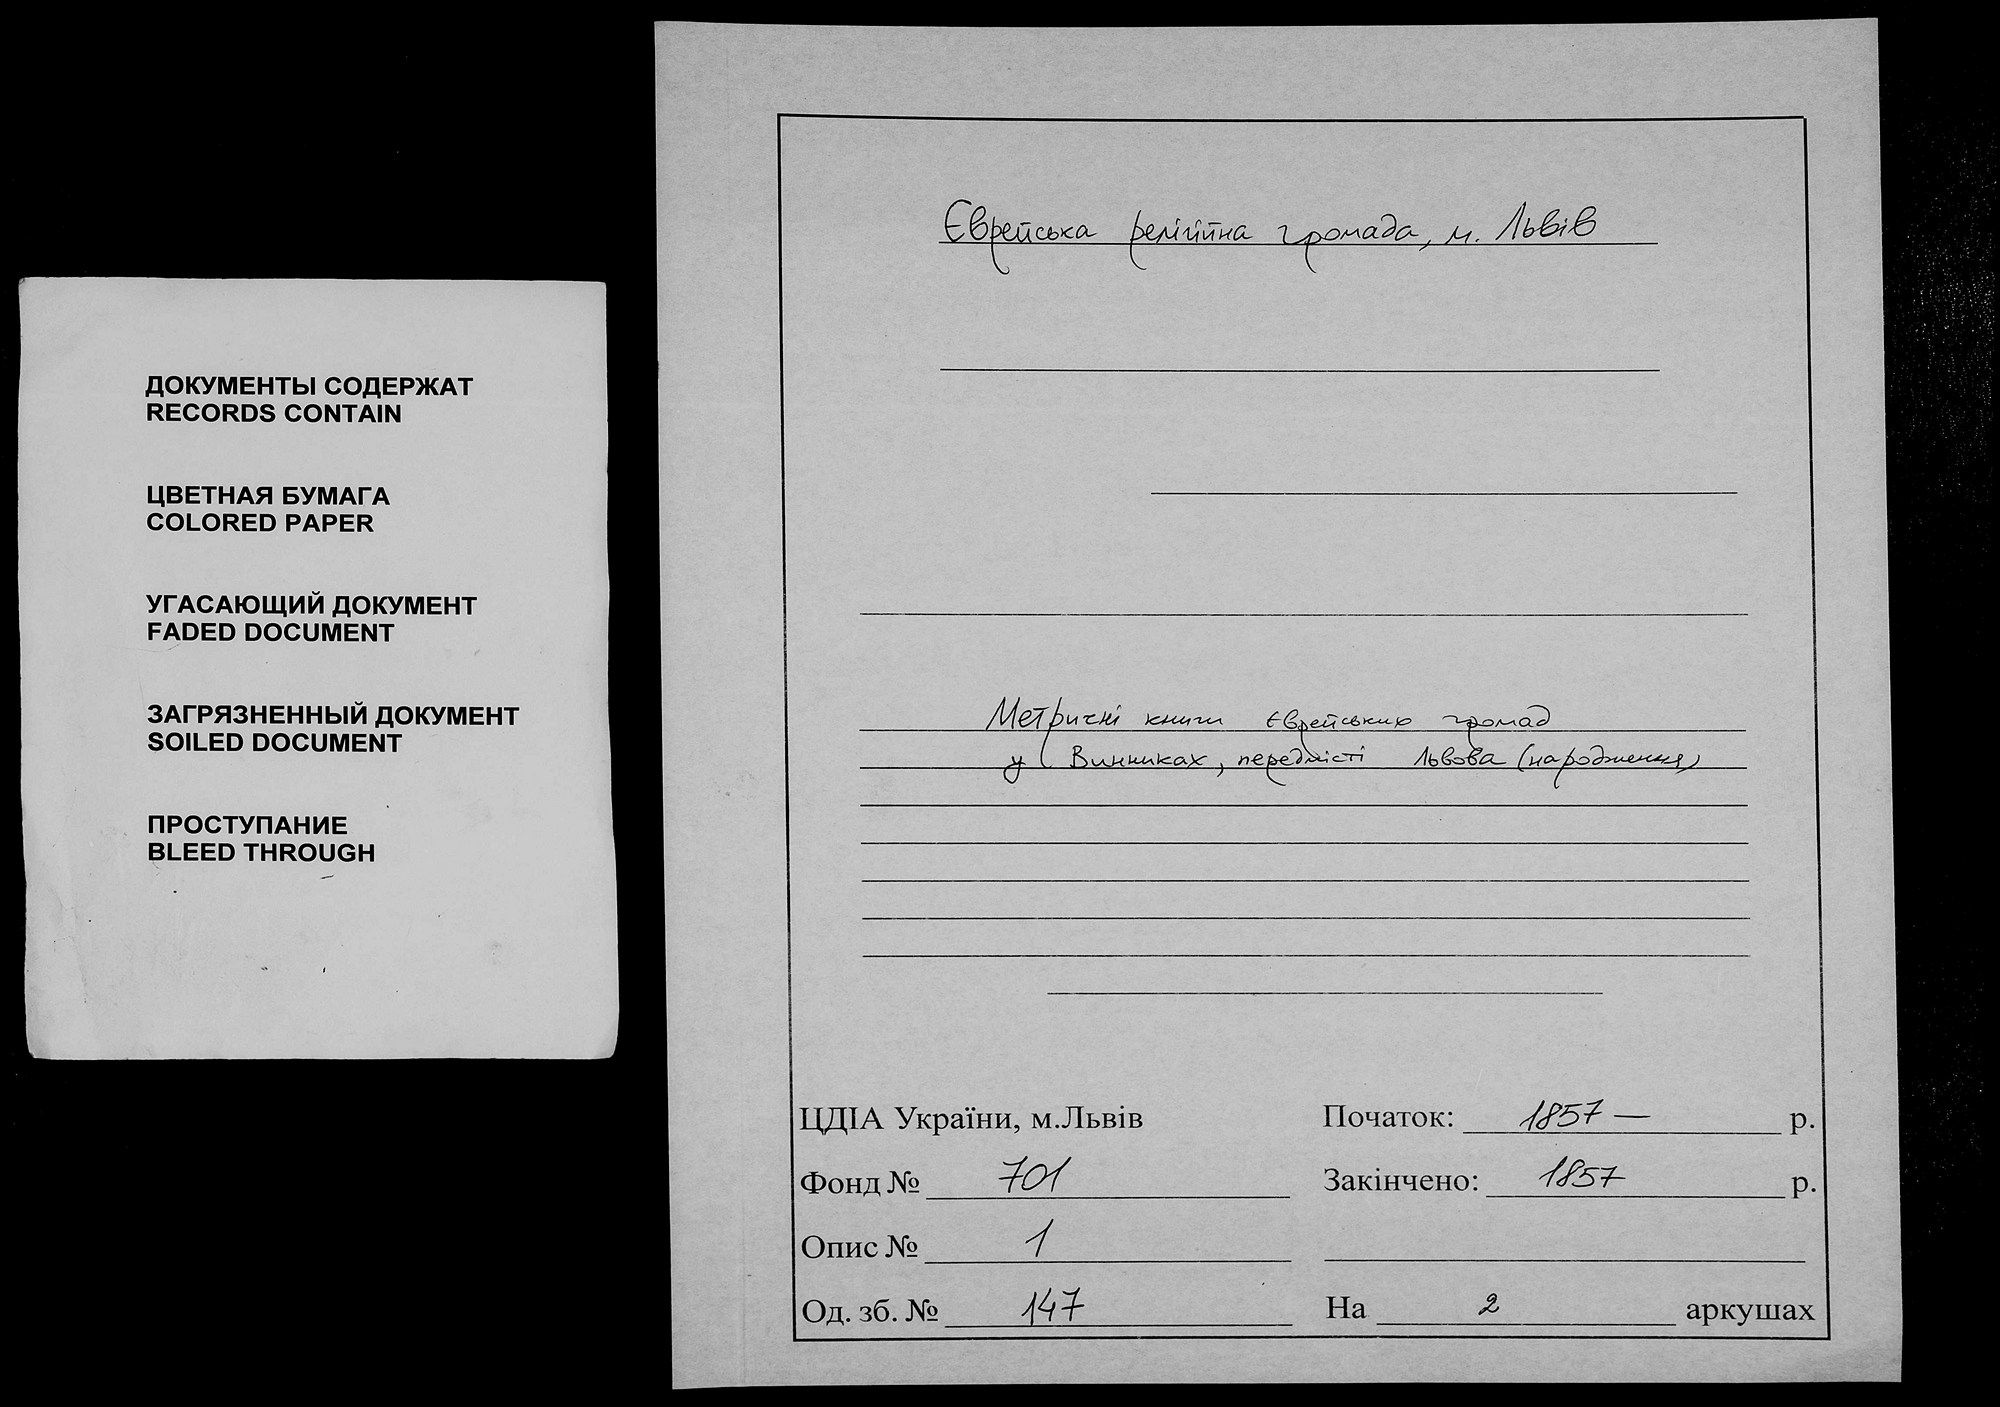 ДОКУМЕНТЫ СОДЕРЖАТ
RECORDS CONTAIN
ЦВЕТНАЯ БУМАГА
COLORED PAPER
УГАСАЮЩИЙ ДОКУМЕНТ
FADED DOCUMENT
ЗАГРЯЗНЕННЫЙ ДОКУМЕНТ
SOILED DOCUMENT
ПРОСТУПАНИЕ
BLEED THROUGH
Єврейська релігійна громада, м. Львів
Метричні книги єврейських громад
у Винниках, передмісті Львова (народження)
ЦДІА України, м.Львів
Початок: 1857 — р.
Фонд № 701
Закінчено: 1857 р.
Опис № 1
Од. зб. № 147
На 2 аркушах